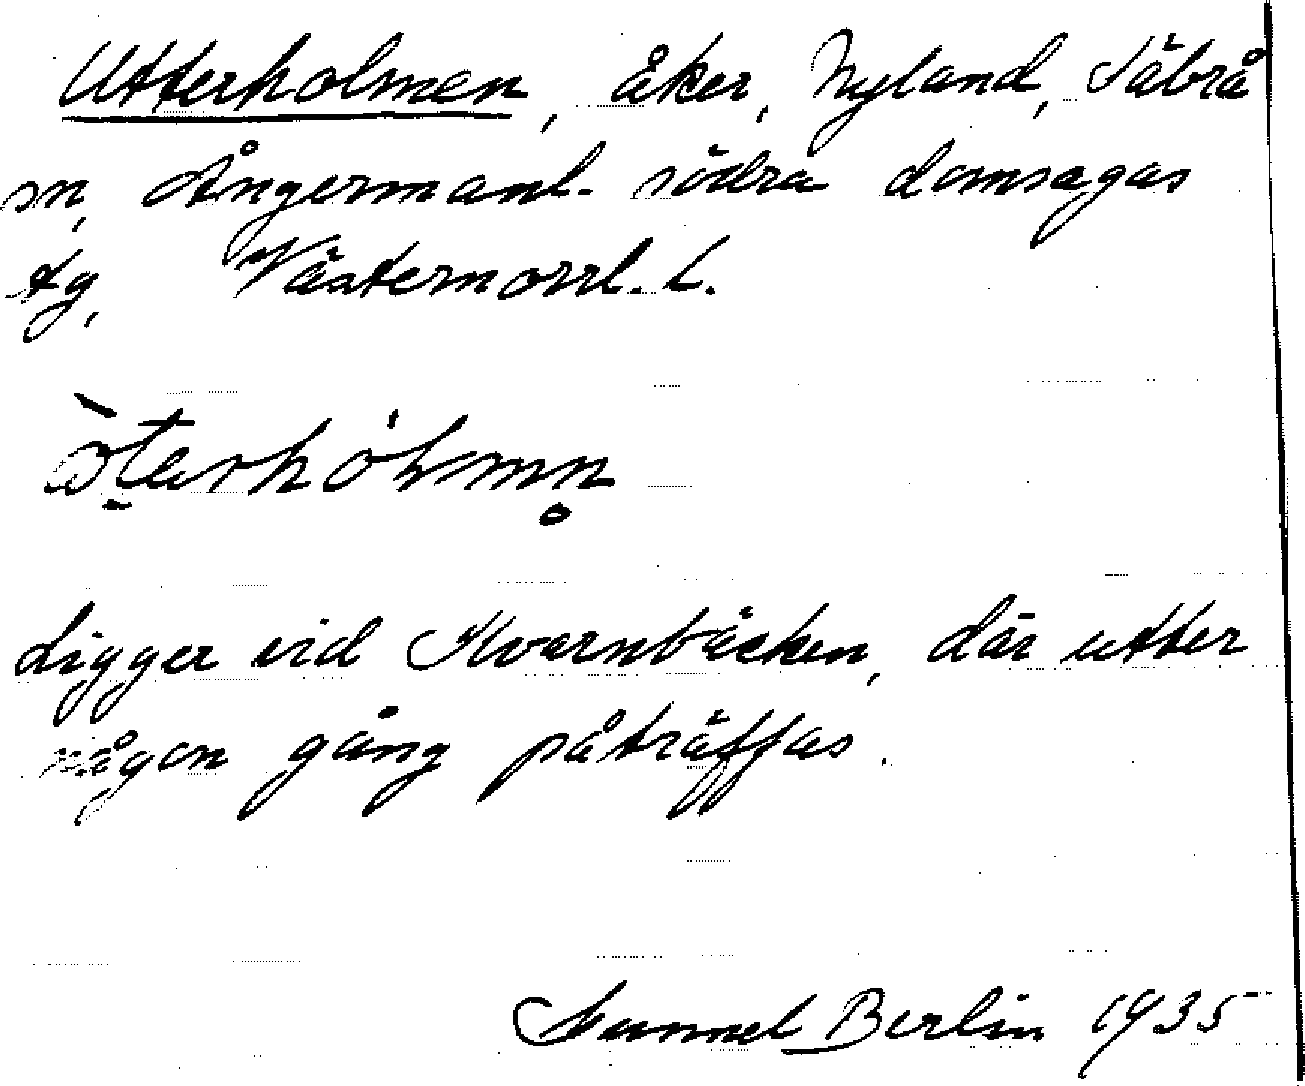 Utterholmen, åker, Nyland, Säbrå
sn, Ångermanl. södra domsagas
tg, Västernorrl. l.
Ligger vid Kvarnbäcken, där utter
någon gång påträffas.
Samuel Berlin 1935